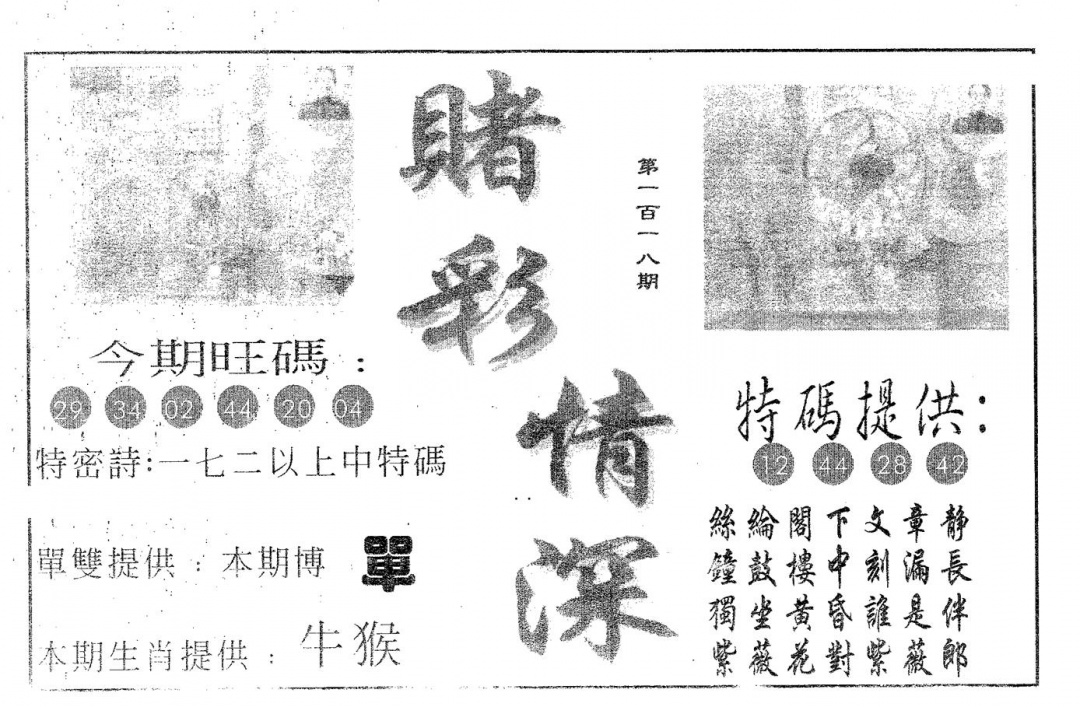 賭彩情深
第一百一八期
今期旺碼：
29 34 02 44 20 04
特密詩:一七二以上中特碼
單雙提供：本期博 單
本期生肖提供：牛猴
特碼提供:
12 44 28 42
絲綸閣下文章靜
鐘鼓樓中刻漏長
獨坐黃昏誰是伴
紫薇花對紫薇郎